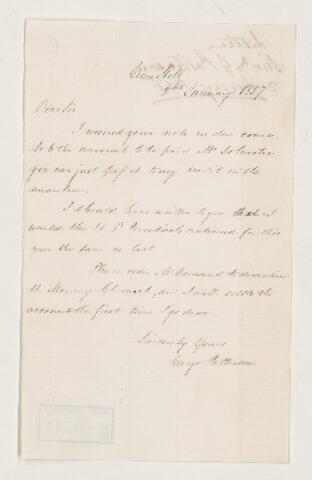 Glen Nell
9th January 1857
Dear Sir
I received your note in due course
As to the amount to be paid Mr Johnston
you can just put it to my credit in the
meantime.
I should have written to you that I
wanted the Periodicals continued for this
year the same as last
Please order Mr to discontinue
the Morning Chronicle, and I will settle the
account the first time I go down.
Sincerely Yours
George Patterson